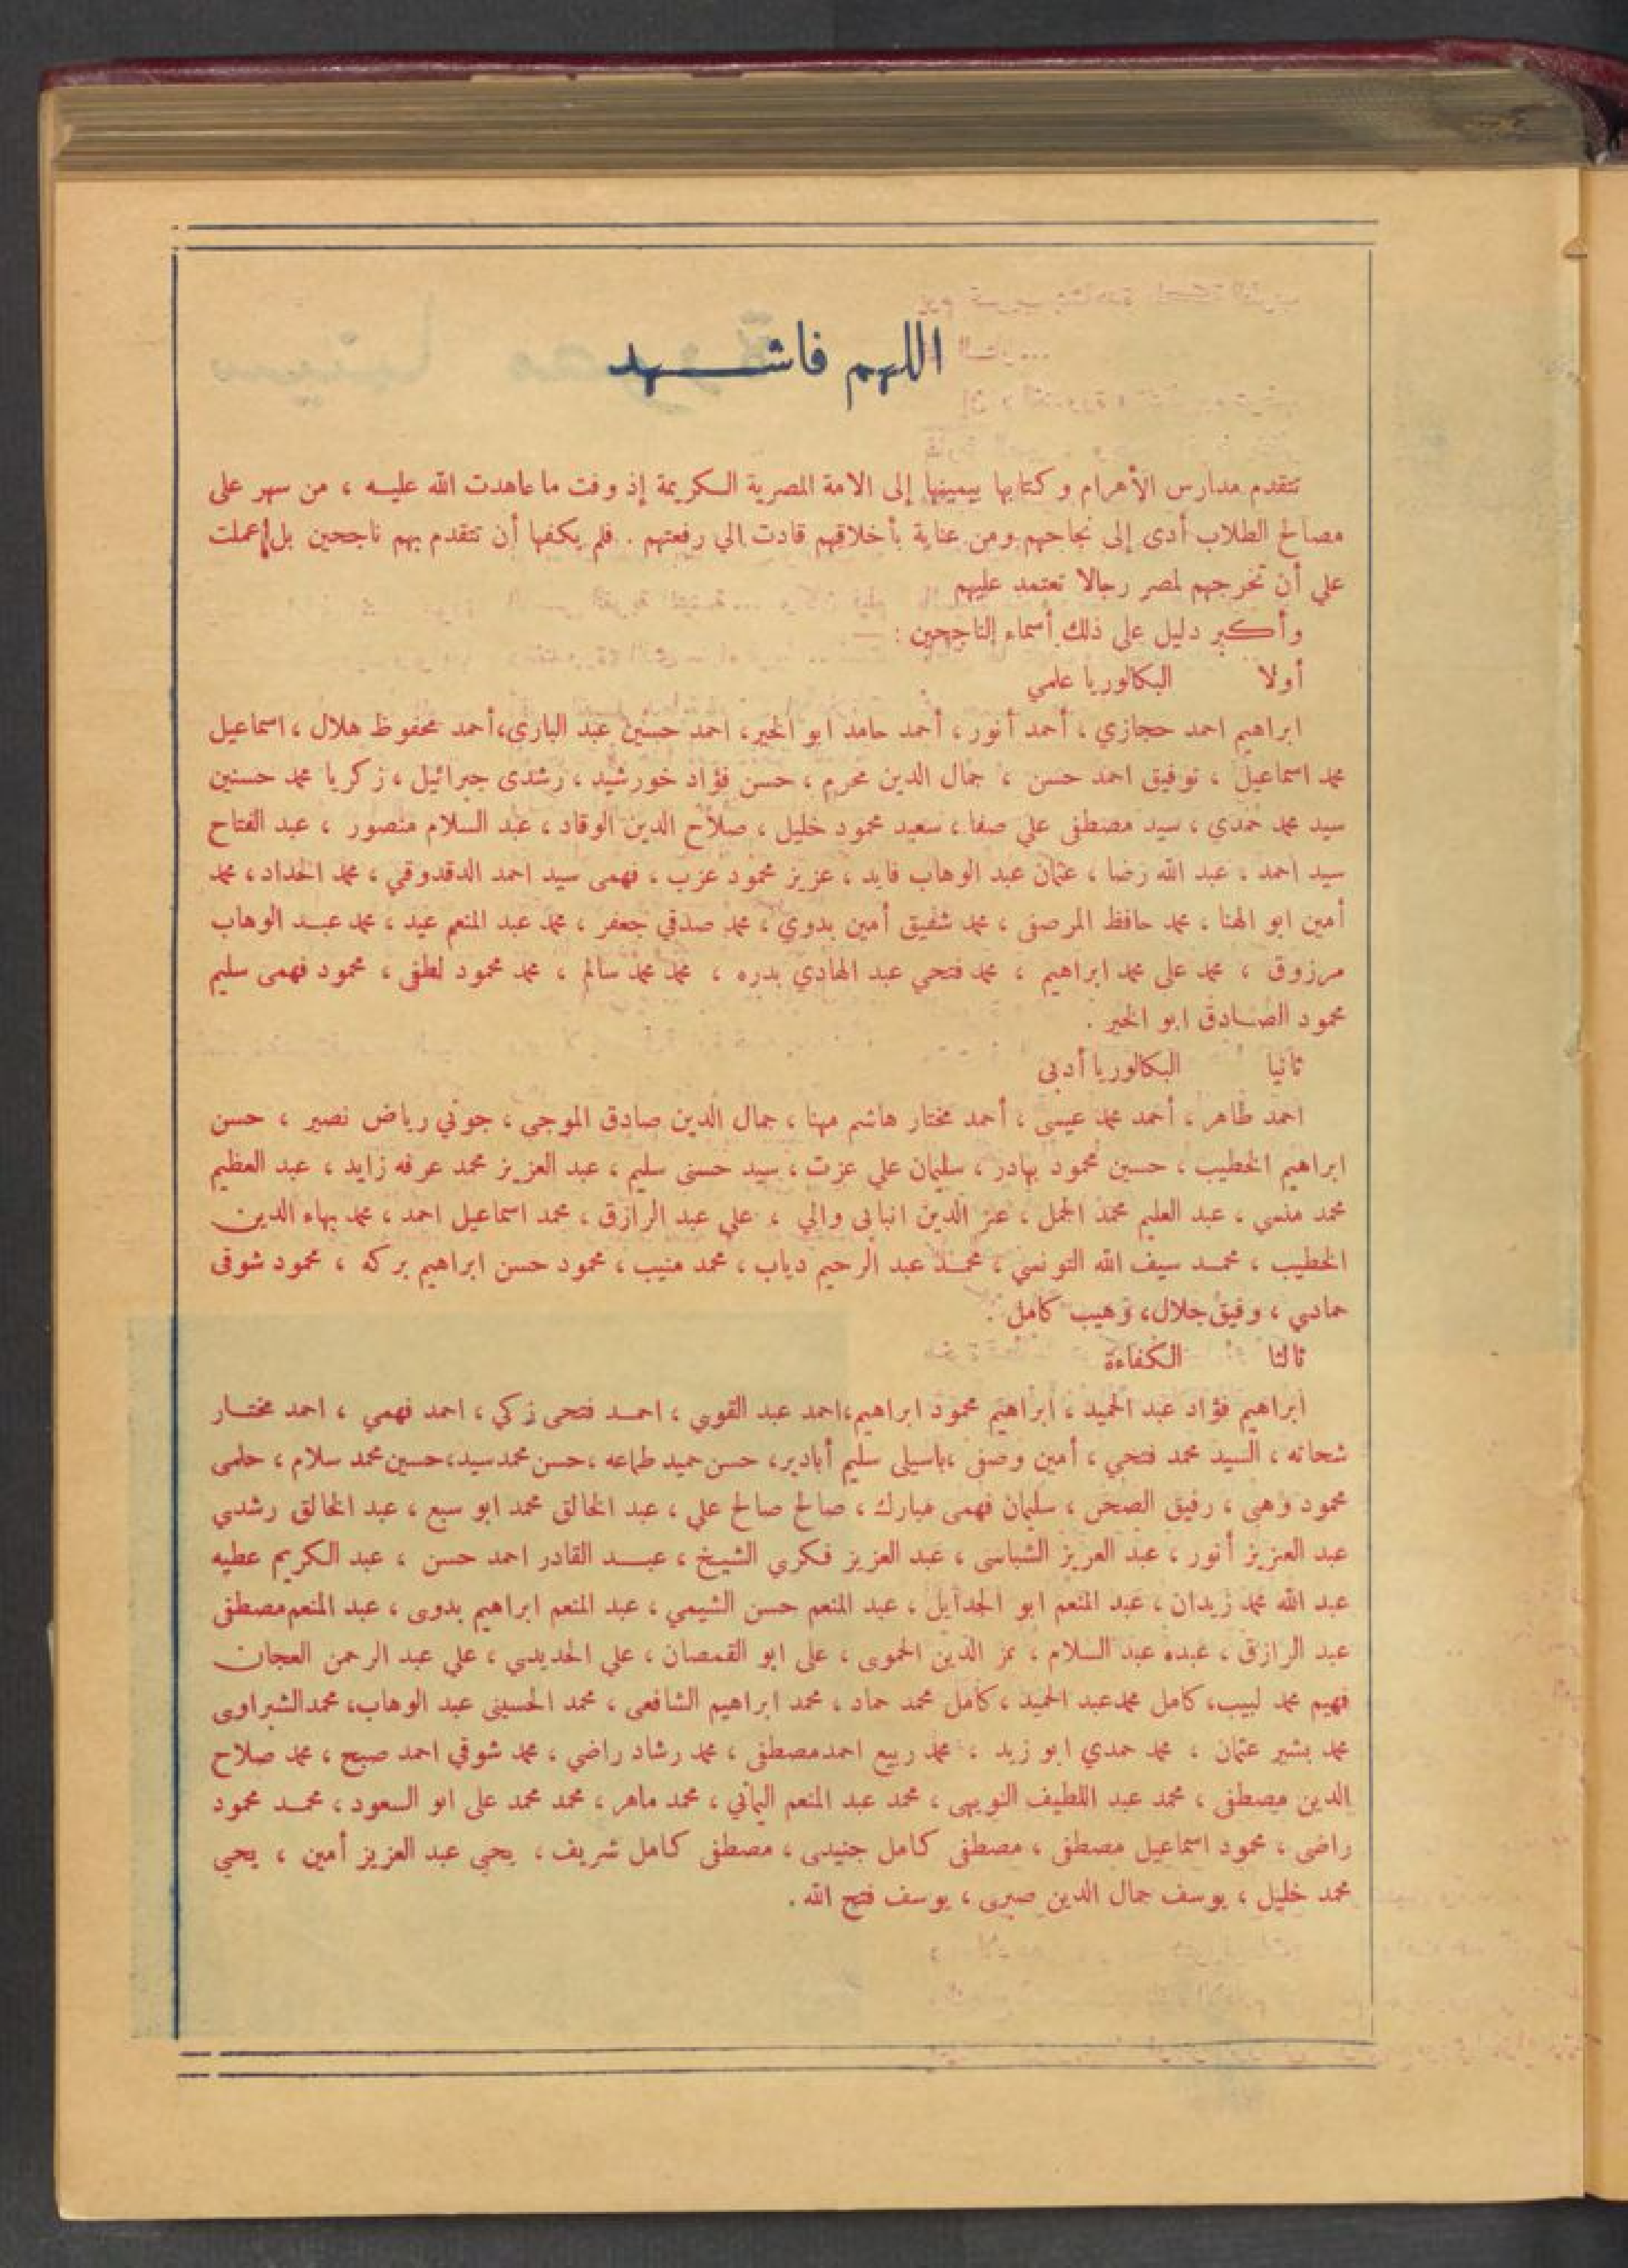 اللهم فاشهد
تتقدم مدارس الأهرام وكتابها بيمينها إلى الامة المصرية الكريمة إذ وفت ما عاهدت الله عليه ، من سهر على
مصالح الطلاب أدى إلى نجاحهم ومن عناية بأخلاقهم قادت الي رفعتهم . فلم يكفها أن تتقدم بهم ناجحين بل أعملت
علي أن تخرجهم لمصر رجالا تعتمد عليهم
وأكبر دليل على ذلك أسماء الناجحين : —
أولا البكالوريا علمي
ابراهيم احمد حجازي ، أحمد أنور ، أحمد حامد ابو الخير ، احمد حسنين عبد الباري ، أحمد محفوظ هلال ، اسماعيل
محمد اسماعيل ، توفيق احمد حسن ، جمال الدين محرم ، حسن فؤاد خورشيد ، رشدى جبرائيل ، زكريا محمد حسنين
سيد محمد حمدي ، سيد مصطفى علي صفا ، سعيد محمود خليل ، صلاح الدين الوقاد ، عبد السلام منصور ، عبد الفتاح
سيد احمد ، عبد الله رضا ، عثمان عبد الوهاب فايد ، عزيز محمود عزب ، فهمى سيد احمد الدقدوقي ، محمد الحداد ، محمد
أمين ابو الهنا ، محمد حافظ المرصفى ، محمد شفيق أمين بدوي ، محمد صدقي جعفر ، محمد عبد المنعم عيد ، محمد عبد الوهاب
مرزوق ، محمد على محمد ابراهيم ، محمد فتحي عبد الهادي بدره ، محمد محمد سالم ، محمد محمود لطفى ، محمود فهمى سليم
محمود الصادق ابو الخير .
ثانيا البكالوريا أدبى
احمد طاهر ، أحمد محمد عيسى ، أحمد مختار هاشم مهنا ، جمال الدين صادق الموجى ، جوني رياض نصير ، حسن
ابراهيم الخطيب ، حسين محمود بهادر ، سليمان علي عزت ، سيد حسنى سليم ، عبد العزيز محمد عرفه زايد ، عبد العظيم
محمد منسي ، عبد العليم محمد الجمل ، عز الدين انبابى والي ، علي عبد الرازق ، محمد اسماعيل احمد ، محمد بهاء الدين
الخطيب ، محمد سيف الله التونسي ، محمد عبد الرحيم دياب ، محمد منيب ، محمود حسن ابراهيم بركه ، محمود شوقى
حمادي ، وفيق جلال ، وهيب كامل .
ثالثا الكفاءة
ابراهيم فؤاد عبد الحميد ، ابراهيم محمود ابراهيم ، احمد عبد القوي ، احمد فتحى زكي ، احمد فهمي ، احمد مختار
شحاته ، السيد محمد فتحي ، أمين وصفى ، باسيلى سليم أبادير ، حسن حميد طماعه ، حسن محمد سيد ، حسين محمد سلام ، حلمى
محمود وهبى ، رفيق الصحن ، سليمان فهمى مبارك ، صالح صالح علي ، عبد الخالق محمد ابو سبع ، عبد الخالق رشدي
عبد العزيز أنور ، عبد العزيز الشباسى ، عبد العزيز فكري الشيخ ، عبد القادر احمد حسن ، عبد الكريم عطيه
عبد الله محمد زيدان ، عبد المنعم ابو الجدايل ، عبد المنعم حسن الشيمي ، عبد المنعم ابراهيم بدوى ، عبد المنعم مصطفى
عبد الرازق ، عبده عبد السلام ، عز الدين الحموى ، على ابو القمصان ، علي الحديدي ، علي عبد الرحمن العجان
فهيم محمد لبيب ، كامل محمد عبد الحميد ، كامل محمد حماد ، محمد ابراهيم الشافعى ، محمد الحسينى عبد الوهاب ، محمد الشبراوى
محمد بشير عثمان ، محمد حمدي ابو زيد ، محمد ربيع احمد مصطفى ، محمد رشاد راضي ، محمد شوقي احمد صبح ، محمد صلاح
الدين مصطفى ، محمد عبد اللطيف النويهى ، محمد عبد المنعم اليماني ، محمد ماهر ، محمد محمد على ابو السعود ، محمد محمود
راضى ، محمود اسماعيل مصطفى ، مصطفى كامل جنيدى ، مصطفى كامل شريف ، يحي عبد العزيز أمين ، يحي
محمد خليل ، يوسف جمال الدين صبرى ، يوسف فتح الله .